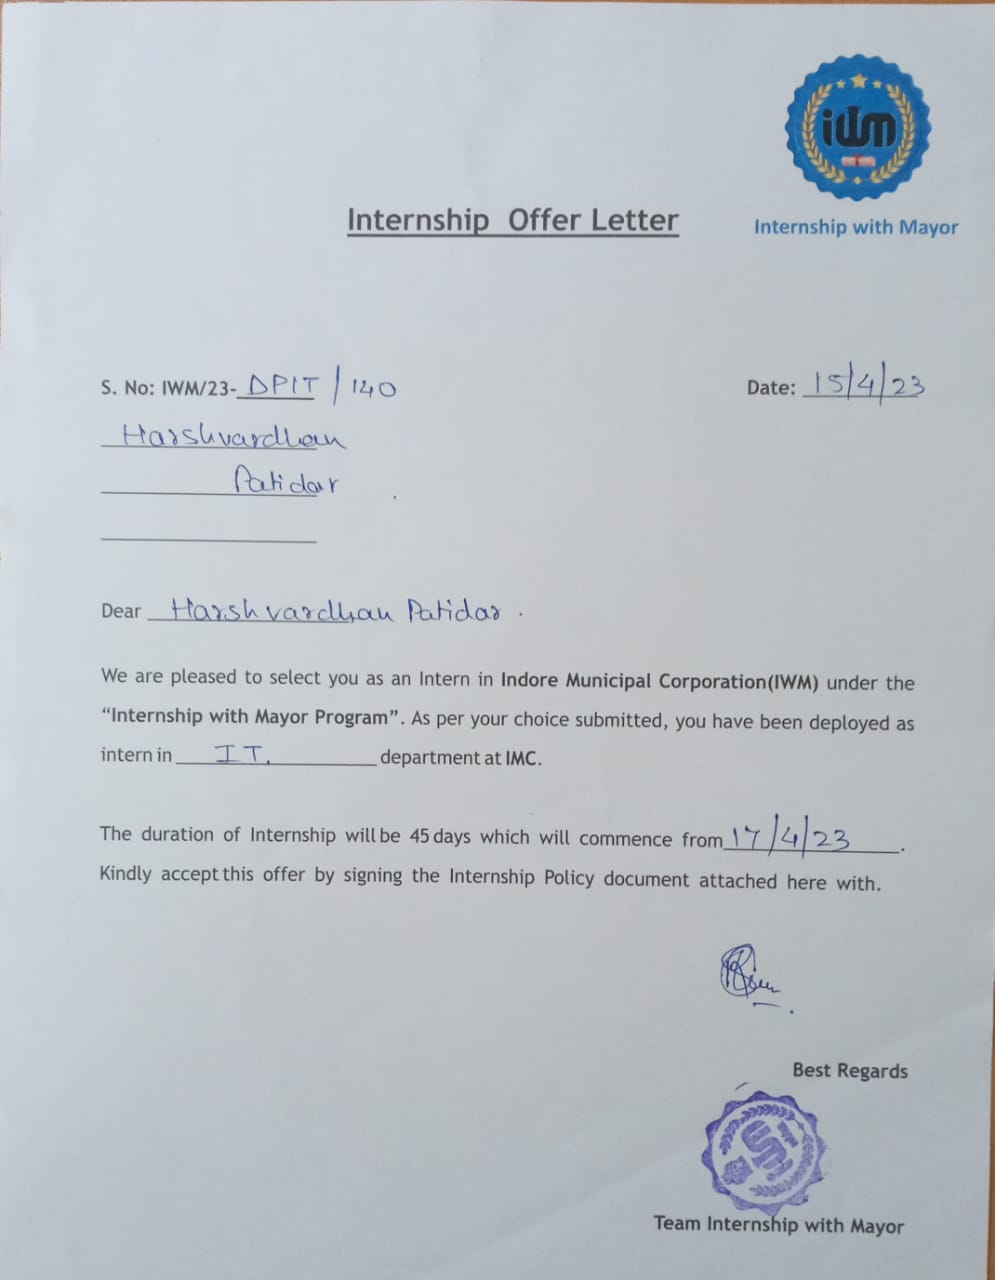 iwm
Internship with Mayor
Internship Offer Letter
S. No: IWM/23- DPIT / 140
Date: 15/4/23
Harshvardhan
Patidar
Dear Harshvardhan Patidar .
We are pleased to select you as an Intern in Indore Municipal Corporation(IWM) under the
“Internship with Mayor Program”. As per your choice submitted, you have been deployed as
intern in IT. department at IMC.
The duration of Internship will be 45 days which will commence from 17/4/23 .
Kindly accept this offer by signing the Internship Policy document attached here with.
Best Regards
Team Internship with Mayor